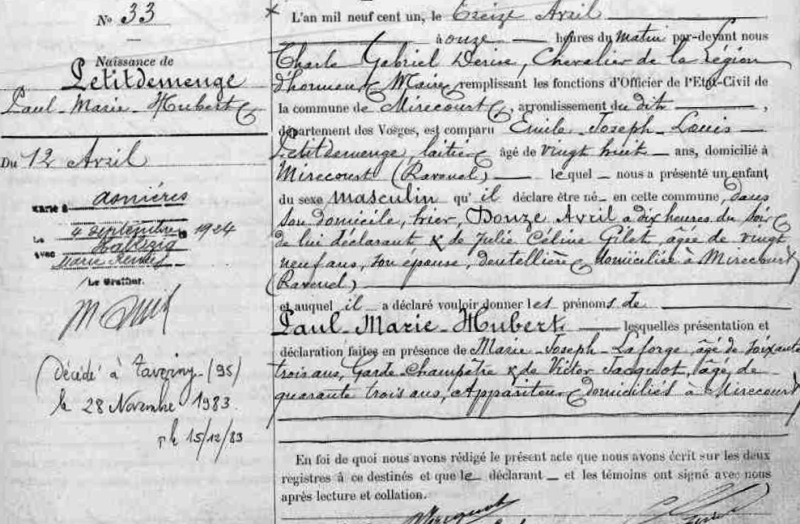 N° 33
Naissance de
Petitdemenge
Paul-Marie-Hubert
Du 12 Avril
Marié à Asnières
le 4 septembre 1924
avec
Marie Renée
Le Greffier,
Décédé à Taverny (95)
le 28 Novembre 1983.
le 15/12/83
L'an mil neuf cent un, le Treize Avril
à onze heures du matin par-devant nous
Charle Gabriel Derise, Chevalier de la Légion
d'honneur Maire, remplissant les fonctions d'Officier de l'Etat-Civil de
la commune de Mirecourt, arrondissement du dit,
département des Vosges, est comparu Emile-Joseph-Louis
Petitdemenge, laitier âgé de vingt huit ans, domicilié à
Mirecourt (Ravenel) lequel nous a présenté un enfant
du sexe masculin qu'il déclare être né en cette commune, dans
son domicile, hier, Douze Avril à dix heures du soir
de lui déclarant & de Julie Céline Gilet, âgée de vingt
neuf ans, son épouse, dentellière domiciliée à Mirecourt
(Ravenel)
et auquel il a déclaré vouloir donner les prénoms de
Paul-Marie-Hubert, lesquelles présentation et
déclaration faites en présence de Marie-Joseph-Laforge, âgé de soixante
trois ans, Garde-Champêtre & de Victor Jacquot, âgé de
quarante trois ans, Appariteur domiciliés à Mirecourt
En foi de quoi nous avons rédigé le présent acte que nous avons écrit sur les deux
registres à ce destinés et que le déclarant et les témoins ont signé avec nous
après lecture et collation.
Jacquot